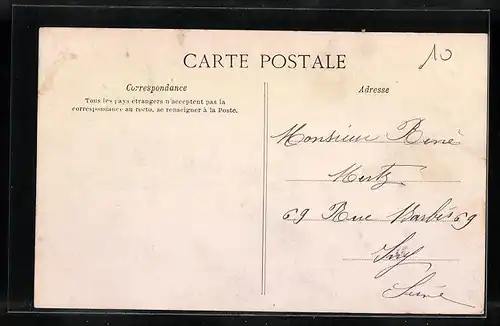 CARTE POSTALE
10
Correspondance
Tous les pays étrangers n'acceptent pas la
correspondance au recto, se renseigner à la Poste.
Adresse
Monsieur René
Mertz
69 Rue Barbès 69
Ivry
Seine